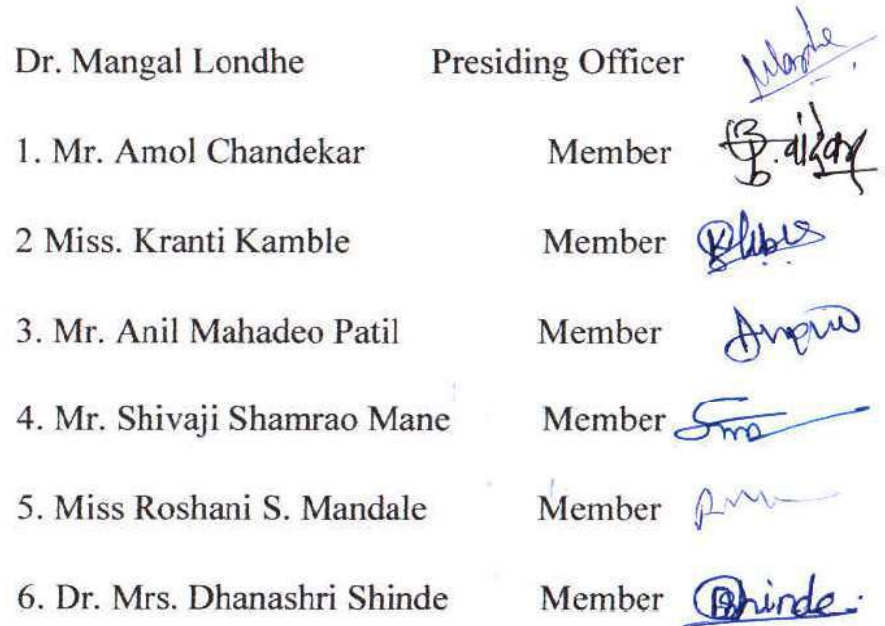 Dr. Mangal Londhe Presiding Officer
1. Mr. Amol Chandekar Member
2 Miss. Kranti Kamble Member
3. Mr. Anil Mahadeo Patil Member
4. Mr. Shivaji Shamrao Mane Member
5. Miss Roshani S. Mandale Member
6. Dr. Mrs. Dhanashri Shinde Member